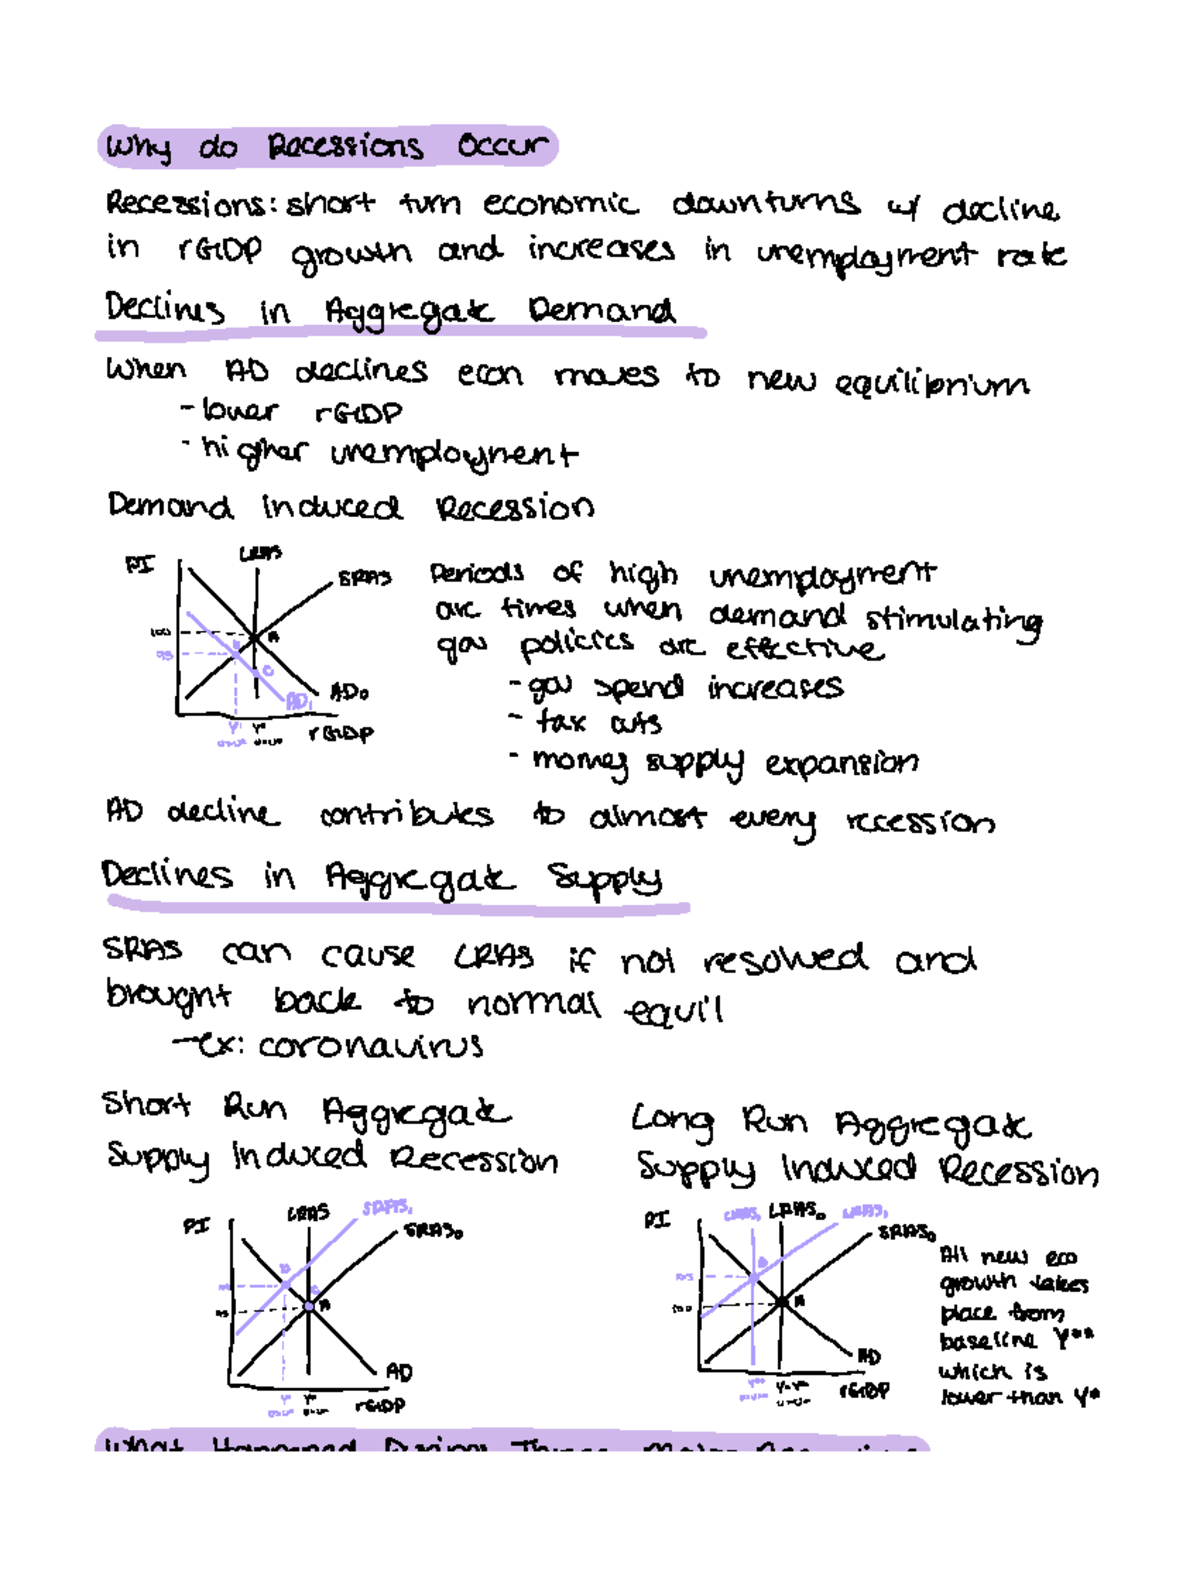 Why do Recessions Occur
Recessions: short turn economic downturns w/ decline
in rGDP growth and increases in unemployment rate
Declines in Aggregate Demand
When AD declines econ moves to new equilibrium
- lower rGDP
- higher unemployment
Demand Induced Recession
PI
LRAS
SRAS
Periods of high unemployment
are times when demand stimulating
gov policies are effective
100
A
95
B
C
- gov spend increases
AD₀
AD₁
- tax cuts
Y' Y*
rGDP
- money supply expansion
AD decline contributes to almost every recession
Declines in Aggregate Supply
SRAS can cause LRAS if not resolved and
brought back to normal equil
- ex: coronavirus
Short Run Aggregate
Supply Induced Recession
Long Run Aggregate
Supply Induced Recession
PI
LRAS
SRAS₁
SRAS₀
B
A
AD
Y' Y*
rGDP
PI
LRAS₁
LRAS₀
SRAS₀
B
105
100
A
AD
Y**
rGDP
All new eco
growth takes
place from
baseline Y**
which is
lower than Y*
What Happened During Three Major Recessions